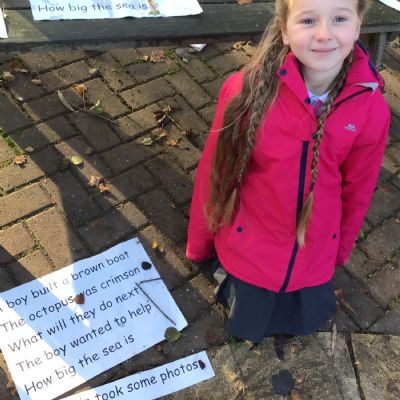 How big the sea is
A boy built a brown boat
The octopus was crimson
What will they do next
The boy wanted to help
How big the sea is
took some photos